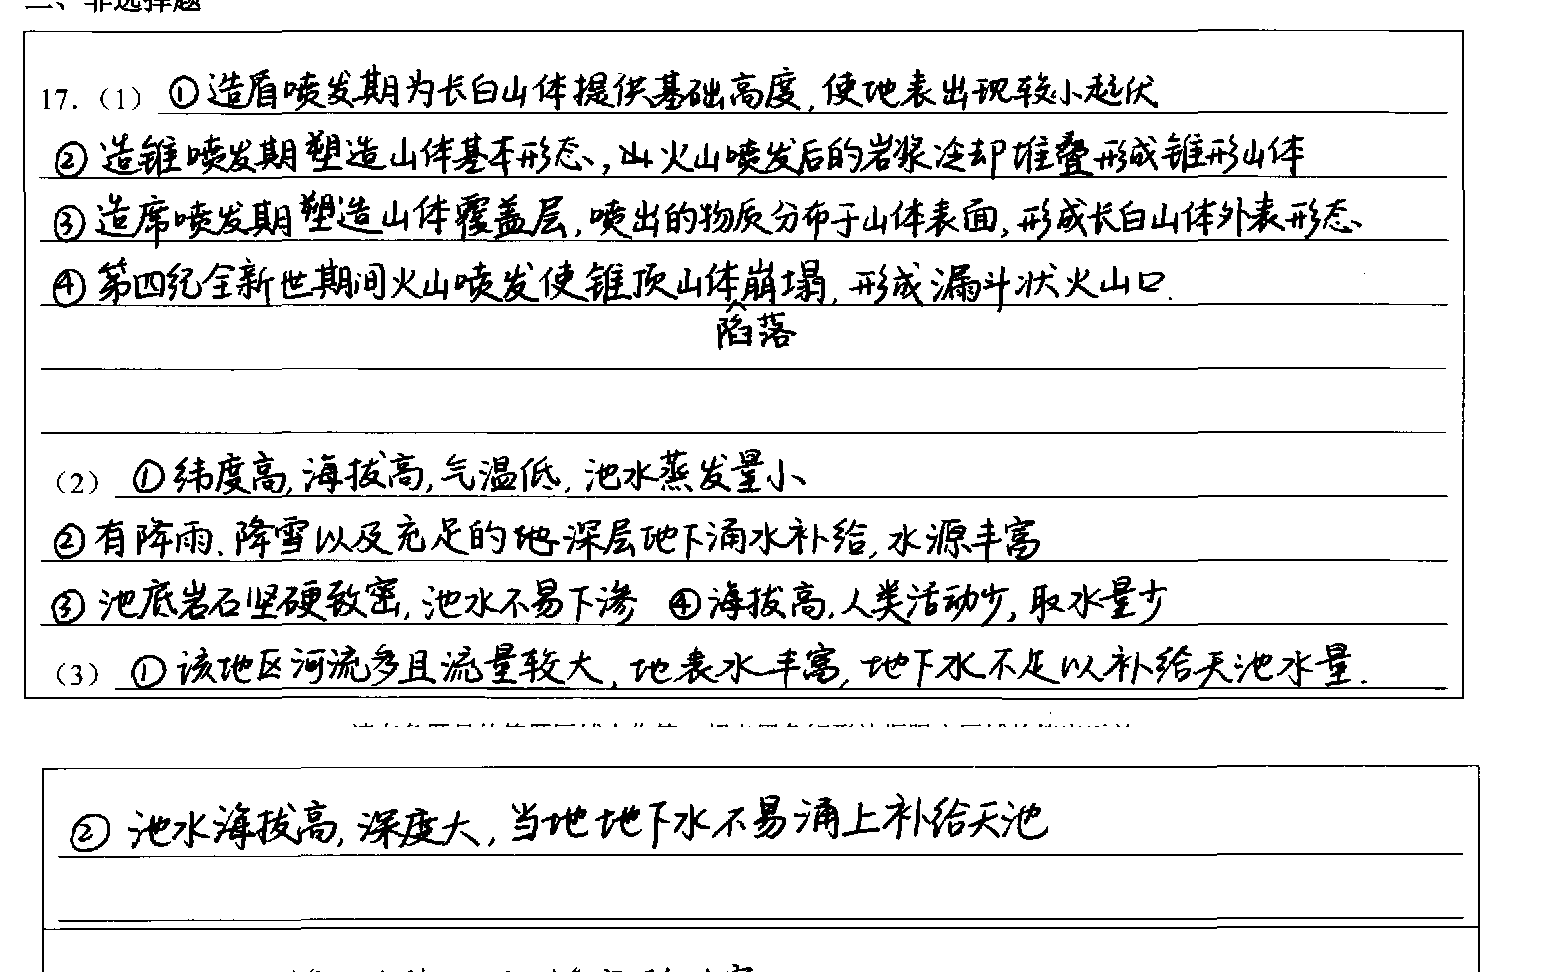 二、非选择题
17.（1）①造盾喷发期为长白山体提供基础高度,使地表出现较小起伏
②造锥喷发期塑造山体基本形态,火山喷发后的岩浆冷却堆叠形成锥形山体
③造席喷发期塑造山体覆盖层,喷出的物质分布于山体表面,形成长白山体外表形态
④第四纪全新世期间火山喷发使锥顶山体崩塌,形成漏斗状火山口.
陷落
（2）①纬度高,海拔高,气温低,池水蒸发量小
②有降雨、降雪以及充足的地深层地下涌水补给,水源丰富
③池底岩石坚硬致密,池水不易下渗 ④海拔高,人类活动少,取水量少
（3）①该地区河流多且流量较大,地表水丰富,地下水不足以补给天池水量.
②池水海拔高,深度大,当地地下水不易涌上补给天池